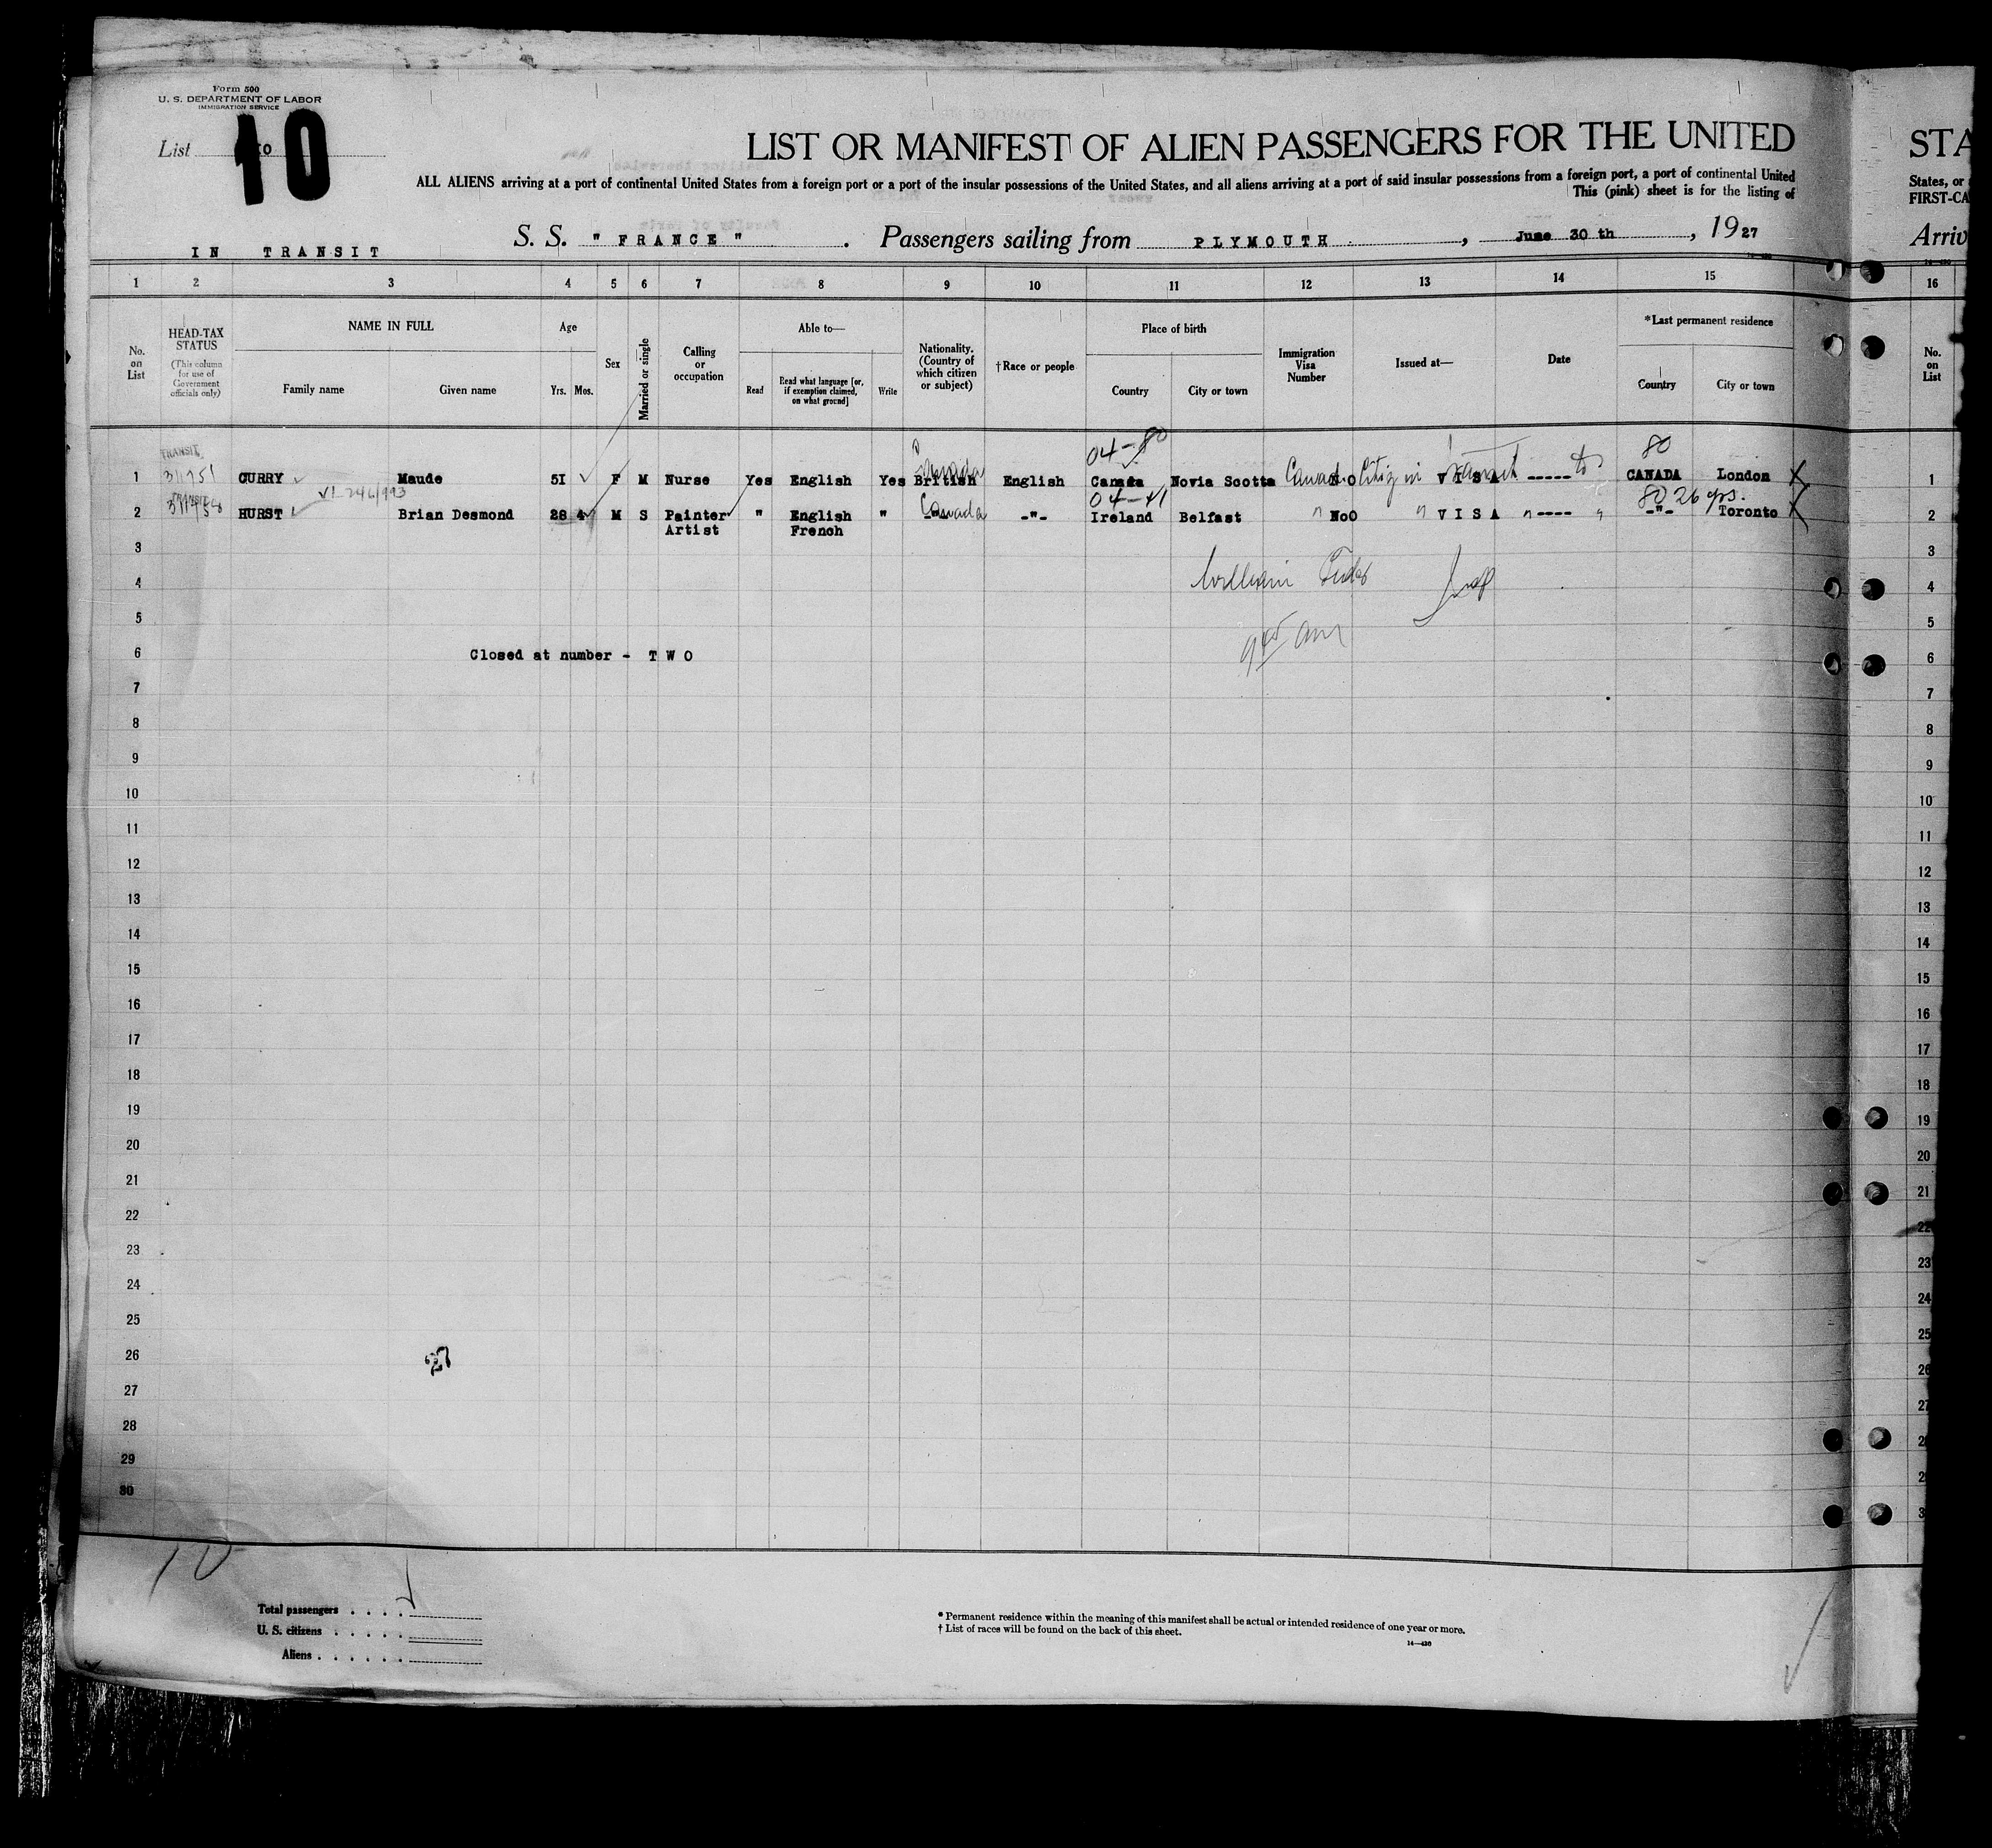 Form 500
U. S. DEPARTMENT OF LABOR
IMMIGRATION SERVICE
List 10
LIST OR MANIFEST OF ALIEN PASSENGERS FOR THE UNITED
STA
ALL ALIENS arriving at a port of continental United States from a foreign port or a port of the insular possessions of the United States, and all aliens arriving at a port of said insular possessions from a foreign port, a port of continental United
States, or
This (pink) sheet is for the listing of
FIRST-CA
IN TRANSIT
S. S. " FRANCE " . Passengers sailing from PLYMOUTH , June 30 th , 1927
Arriv
1 2 3 4 5 6 7 8 9 10 11 12 13 14 15 16
No. on List
HEAD-TAX STATUS
(This column for use of Government officials only)
NAME IN FULL
Family name Given name
Age
Yrs. Mos.
Sex
Married or single
Calling or occupation
Able to—
Read
Read what language [or, if exemption claimed, on what ground]
Write
Nationality. (Country of which citizen or subject)
†Race or people
Place of birth
Country City or town
Immigration Visa Number
Issued at—
Date
*Last permanent residence
Country City or town
No. on List
TRANSIT 04-80 80
1 CURRY Maude 51 F M Nurse Yes English Yes British Canada English Canada Novia Scotta NO Citizen VISA ----- to CANADA London 1
TRANSIT VI-246/993 04-41 80 26 yrs.
2 HURST Brian Desmond 28 4 M S Painter " English " -"- Canada -"- Ireland Belfast " NoO " VISA " ---- " -"- Toronto 2
Artist French
3 3
4 William 4
5 5
am
6 Closed at number - TWO 6
7 7
8 8
9 9
10 10
11 11
12 12
13 13
14 14
15 15
16 16
17 17
18 18
19 19
20 20
21 21
22 22
23 23
24 24
25 25
26 27 26
27 27
28 28
29 2
30 3
10
Total passengers . . . .
U. S. citizens . . . . .
Aliens . . . . . .
* Permanent residence within the meaning of this manifest shall be actual or intended residence of one year or more.
† List of races will be found on the back of this sheet.
14—430